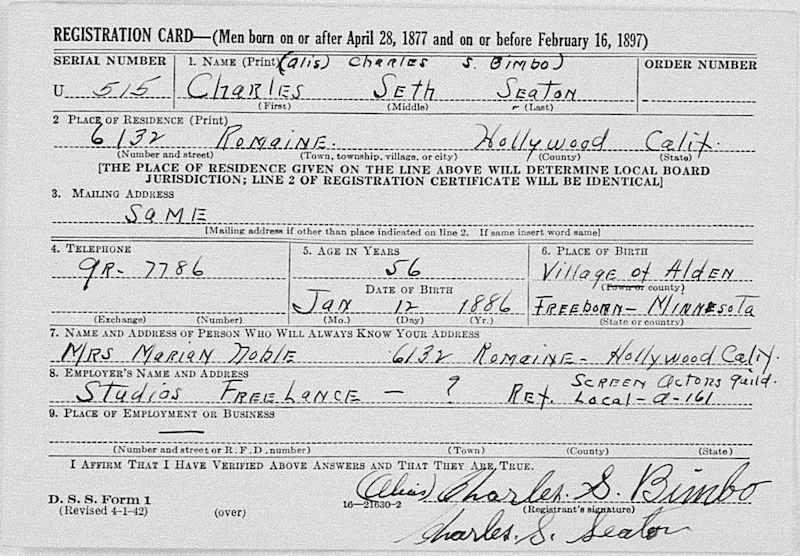 REGISTRATION CARD—(Men born on or after April 28, 1877 and on or before February 16, 1897)
SERIAL NUMBER
1. NAME (Print) (alis) CHARLES S. BIMBO)
ORDER NUMBER
U 515
CHARLES SETH SEATON
(First) (Middle) (Last)
2 PLACE OF RESIDENCE (Print)
6132 ROMAINE. Hollywood Calif.
(Number and street) (Town, township, village, or city) (County) (State)
[THE PLACE OF RESIDENCE GIVEN ON THE LINE ABOVE WILL DETERMINE LOCAL BOARD
JURISDICTION; LINE 2 OF REGISTRATION CERTIFICATE WILL BE IDENTICAL]
3. MAILING ADDRESS
SAME
[Mailing address if other than place indicated on line 2. If same insert word same]
4. TELEPHONE
5. AGE IN YEARS
6. PLACE OF BIRTH
GR- 7786
56
Village of Alden
(Town or county)
DATE OF BIRTH
JAN 12 1886
FREEBORN- MINNESOTA
(Exchange) (Number)
(Mo.) (Day) (Yr.)
(State or country)
7. NAME AND ADDRESS OF PERSON WHO WILL ALWAYS KNOW YOUR ADDRESS
MRS MARIAN NOBLE 6132 ROMAINE- Hollywood Calif.
8. EMPLOYER'S NAME AND ADDRESS
SCREEN ACTORS Guild.
STUDIOS FREELANCE — ? REF. LOCAL-A-161
9. PLACE OF EMPLOYMENT OR BUSINESS
—
(Number and street or R. F. D. number) (Town) (County) (State)
I AFFIRM THAT I HAVE VERIFIED ABOVE ANSWERS AND THAT THEY ARE TRUE.
(Alias) Charles. S. Bimbo
D. S. S. Form 1
(Revised 4-1-42) (over) 16—21630-2 (Registrant's signature)
Charles. S. Seaton